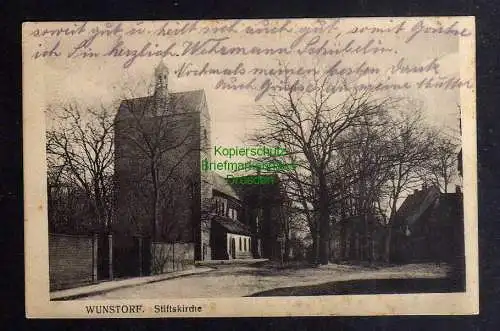 soweit gut u heilt sich auch gut, somit Grüße
ich Sie herzlich. Wehrmann Schübelin.
Nochmals meinen besten Dank
auch Grüße an meine Mutter
Kopierschutz
Briefmarken
Dresden
WUNSTORF. Stiftskirche